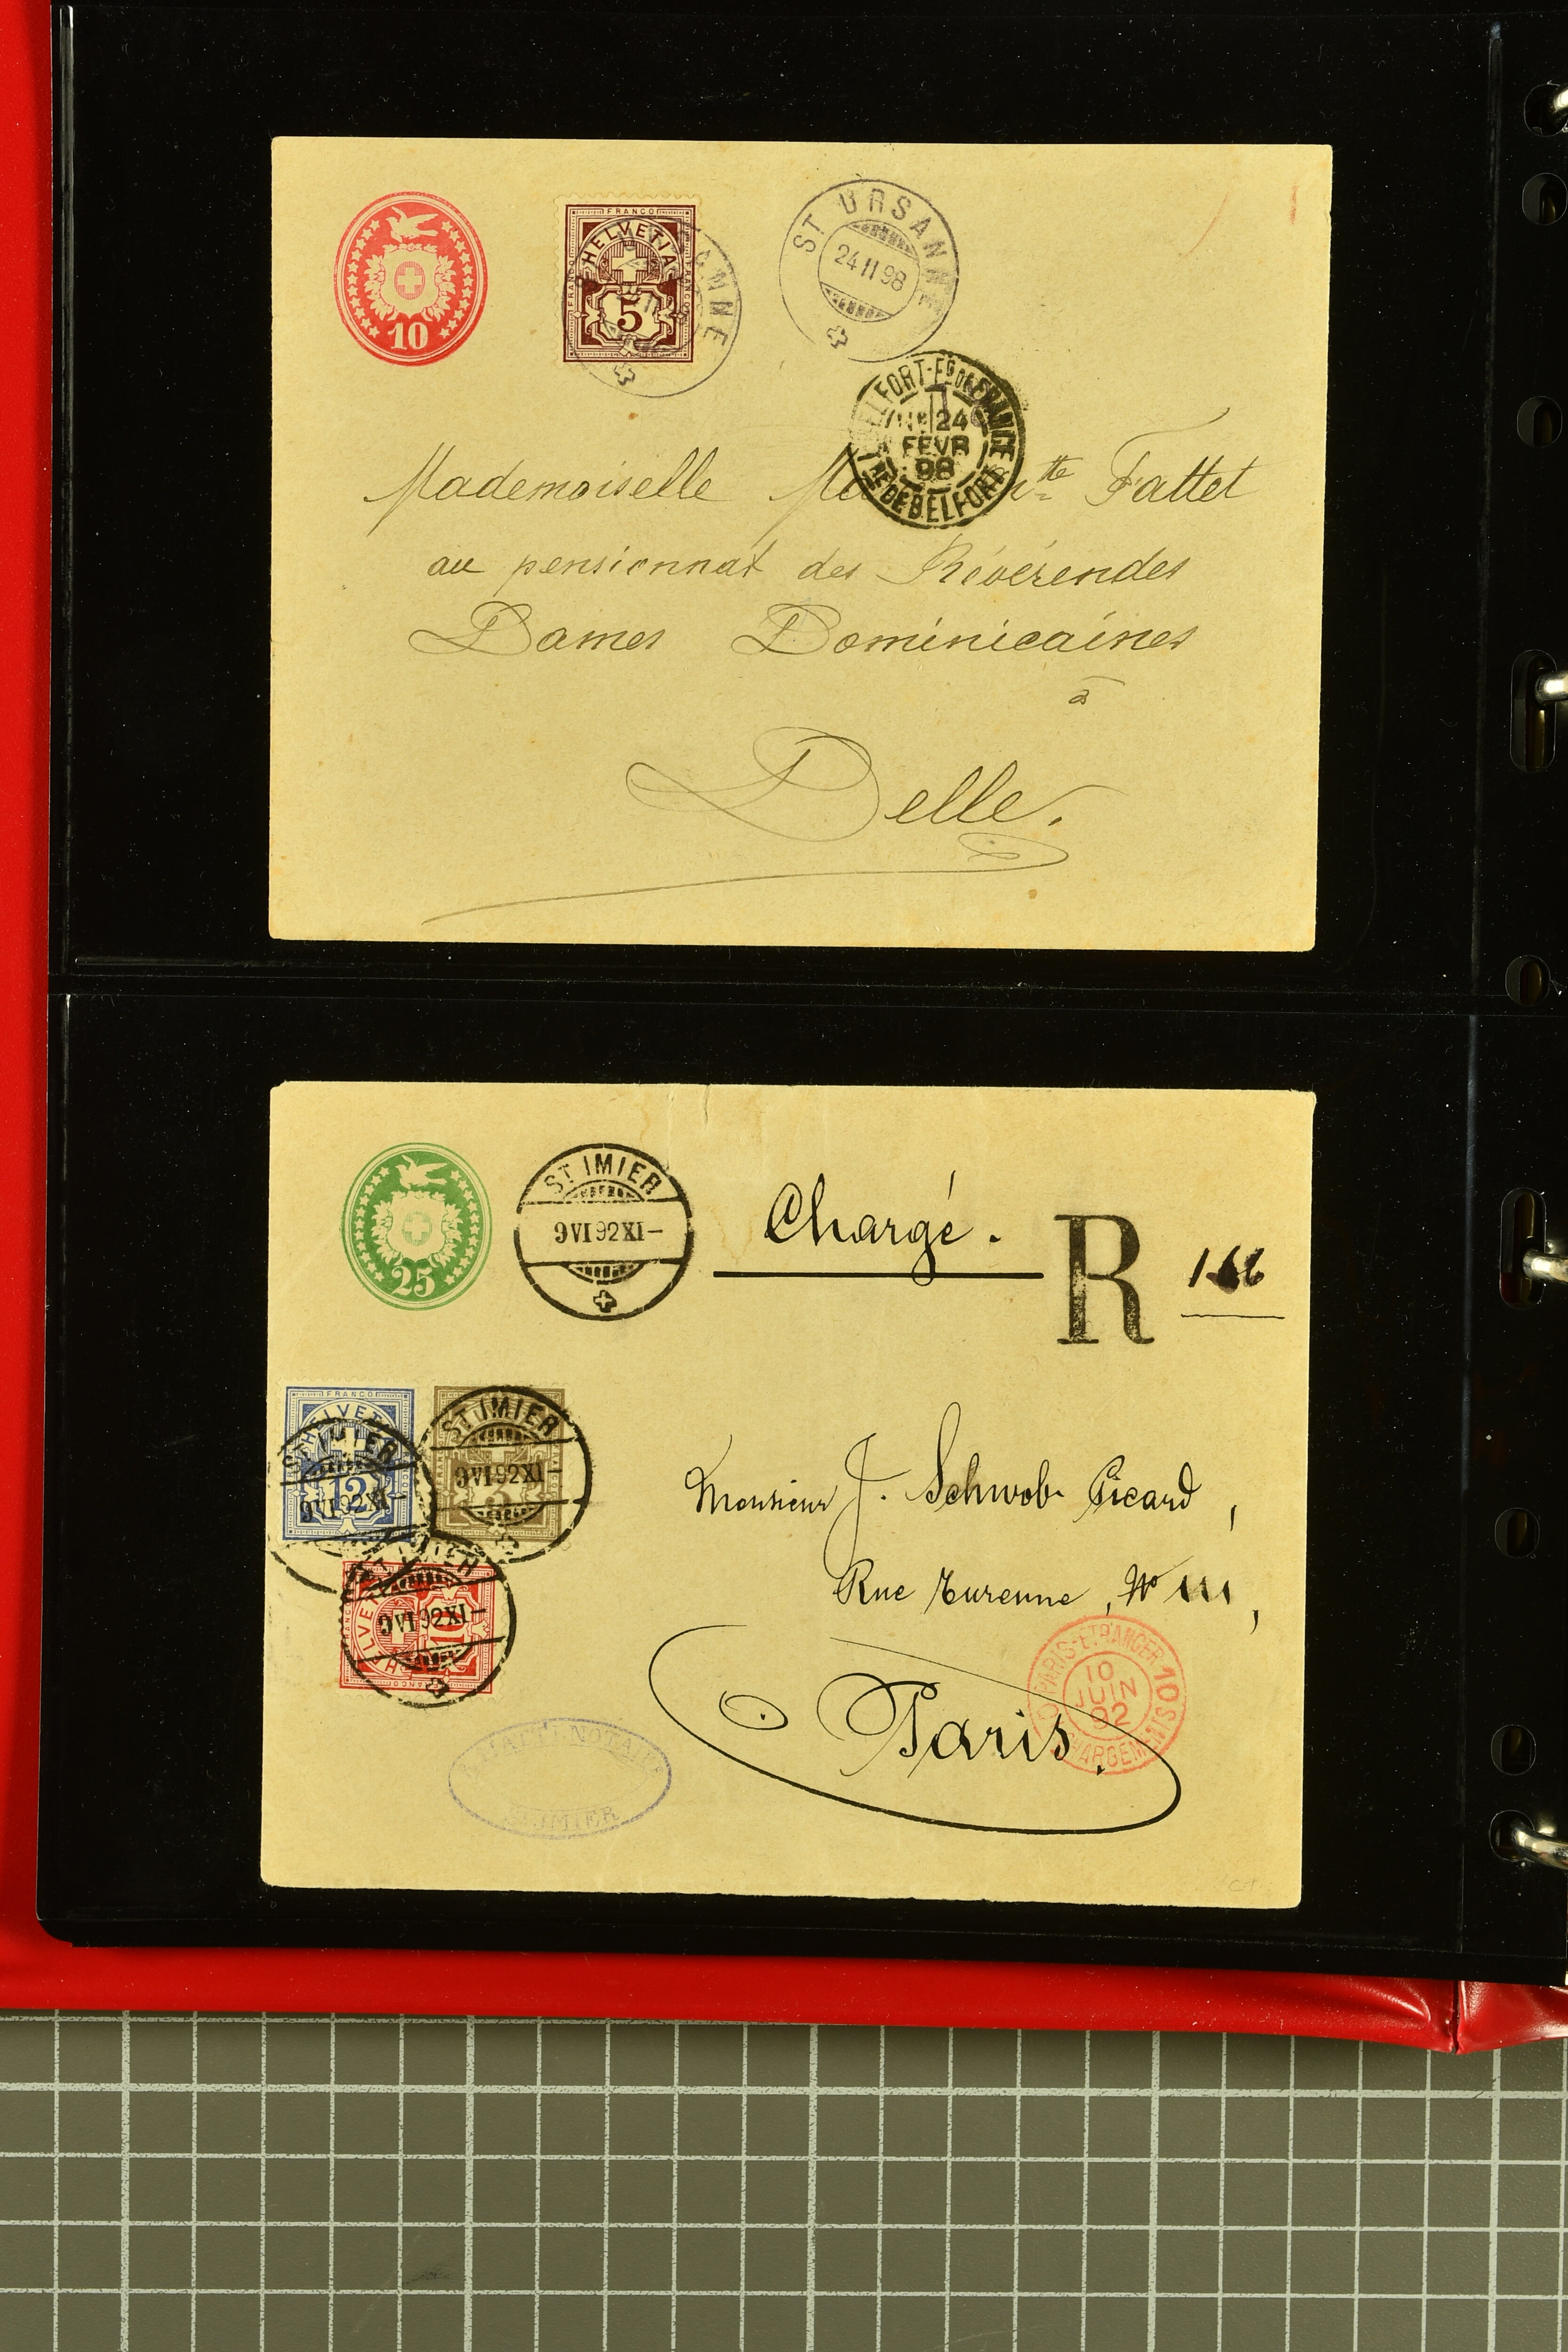 10
FRANCO
HELVETIA
FRANCO
FRANCO
5
ANNE
ST URSANNE
24 II 98
BELFORT-FG DE FRANCE
24
FEVR
98
RE DE BELFORT
Mademoiselle tte Fattet
au pensionnat des Révérendes
Dames Dominicaines
à
Delle.
25
ST IMIER
9 VI 92 XI-
Chargé.
R
FRANCO
HELVET
12
ST IMIER
9 VI 92 XI-
ST IMIER
9 VI 92 XI-
Monsieur J. Schwob-Picard,
Rue Turenne, No 111,
Paris.
10
9 VI 92 XI-
PARIS-ETRANGER
10
JUIN
92
CHARGEMENTS
10
NOTAIRE
ST IMIER